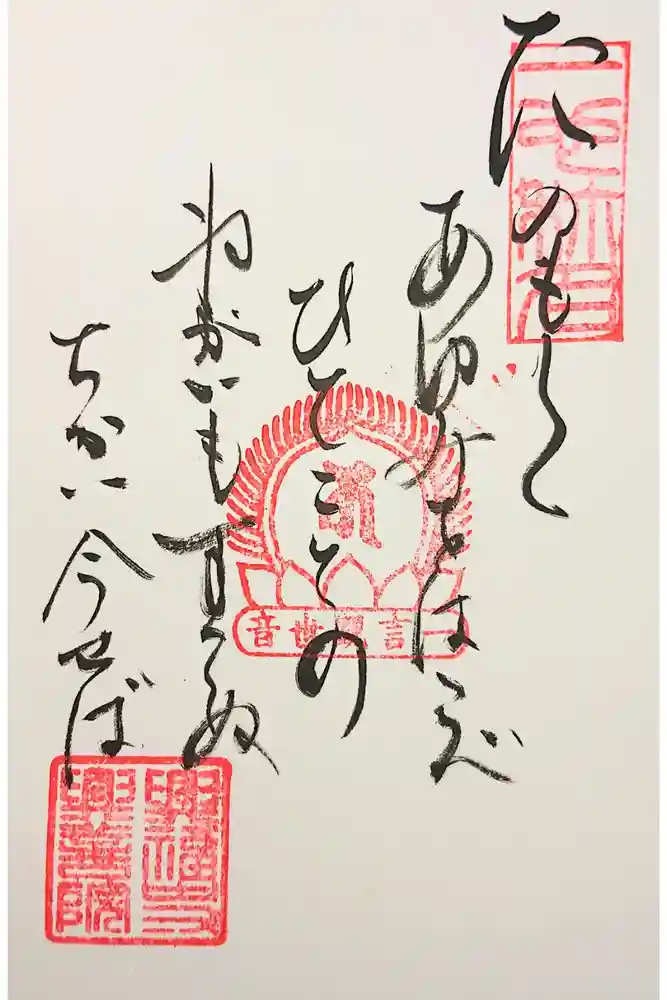 たのもしく
あゆみをはこべ
ひとことの
ねがいもすてぬ
ちかい今せば
一言観世音